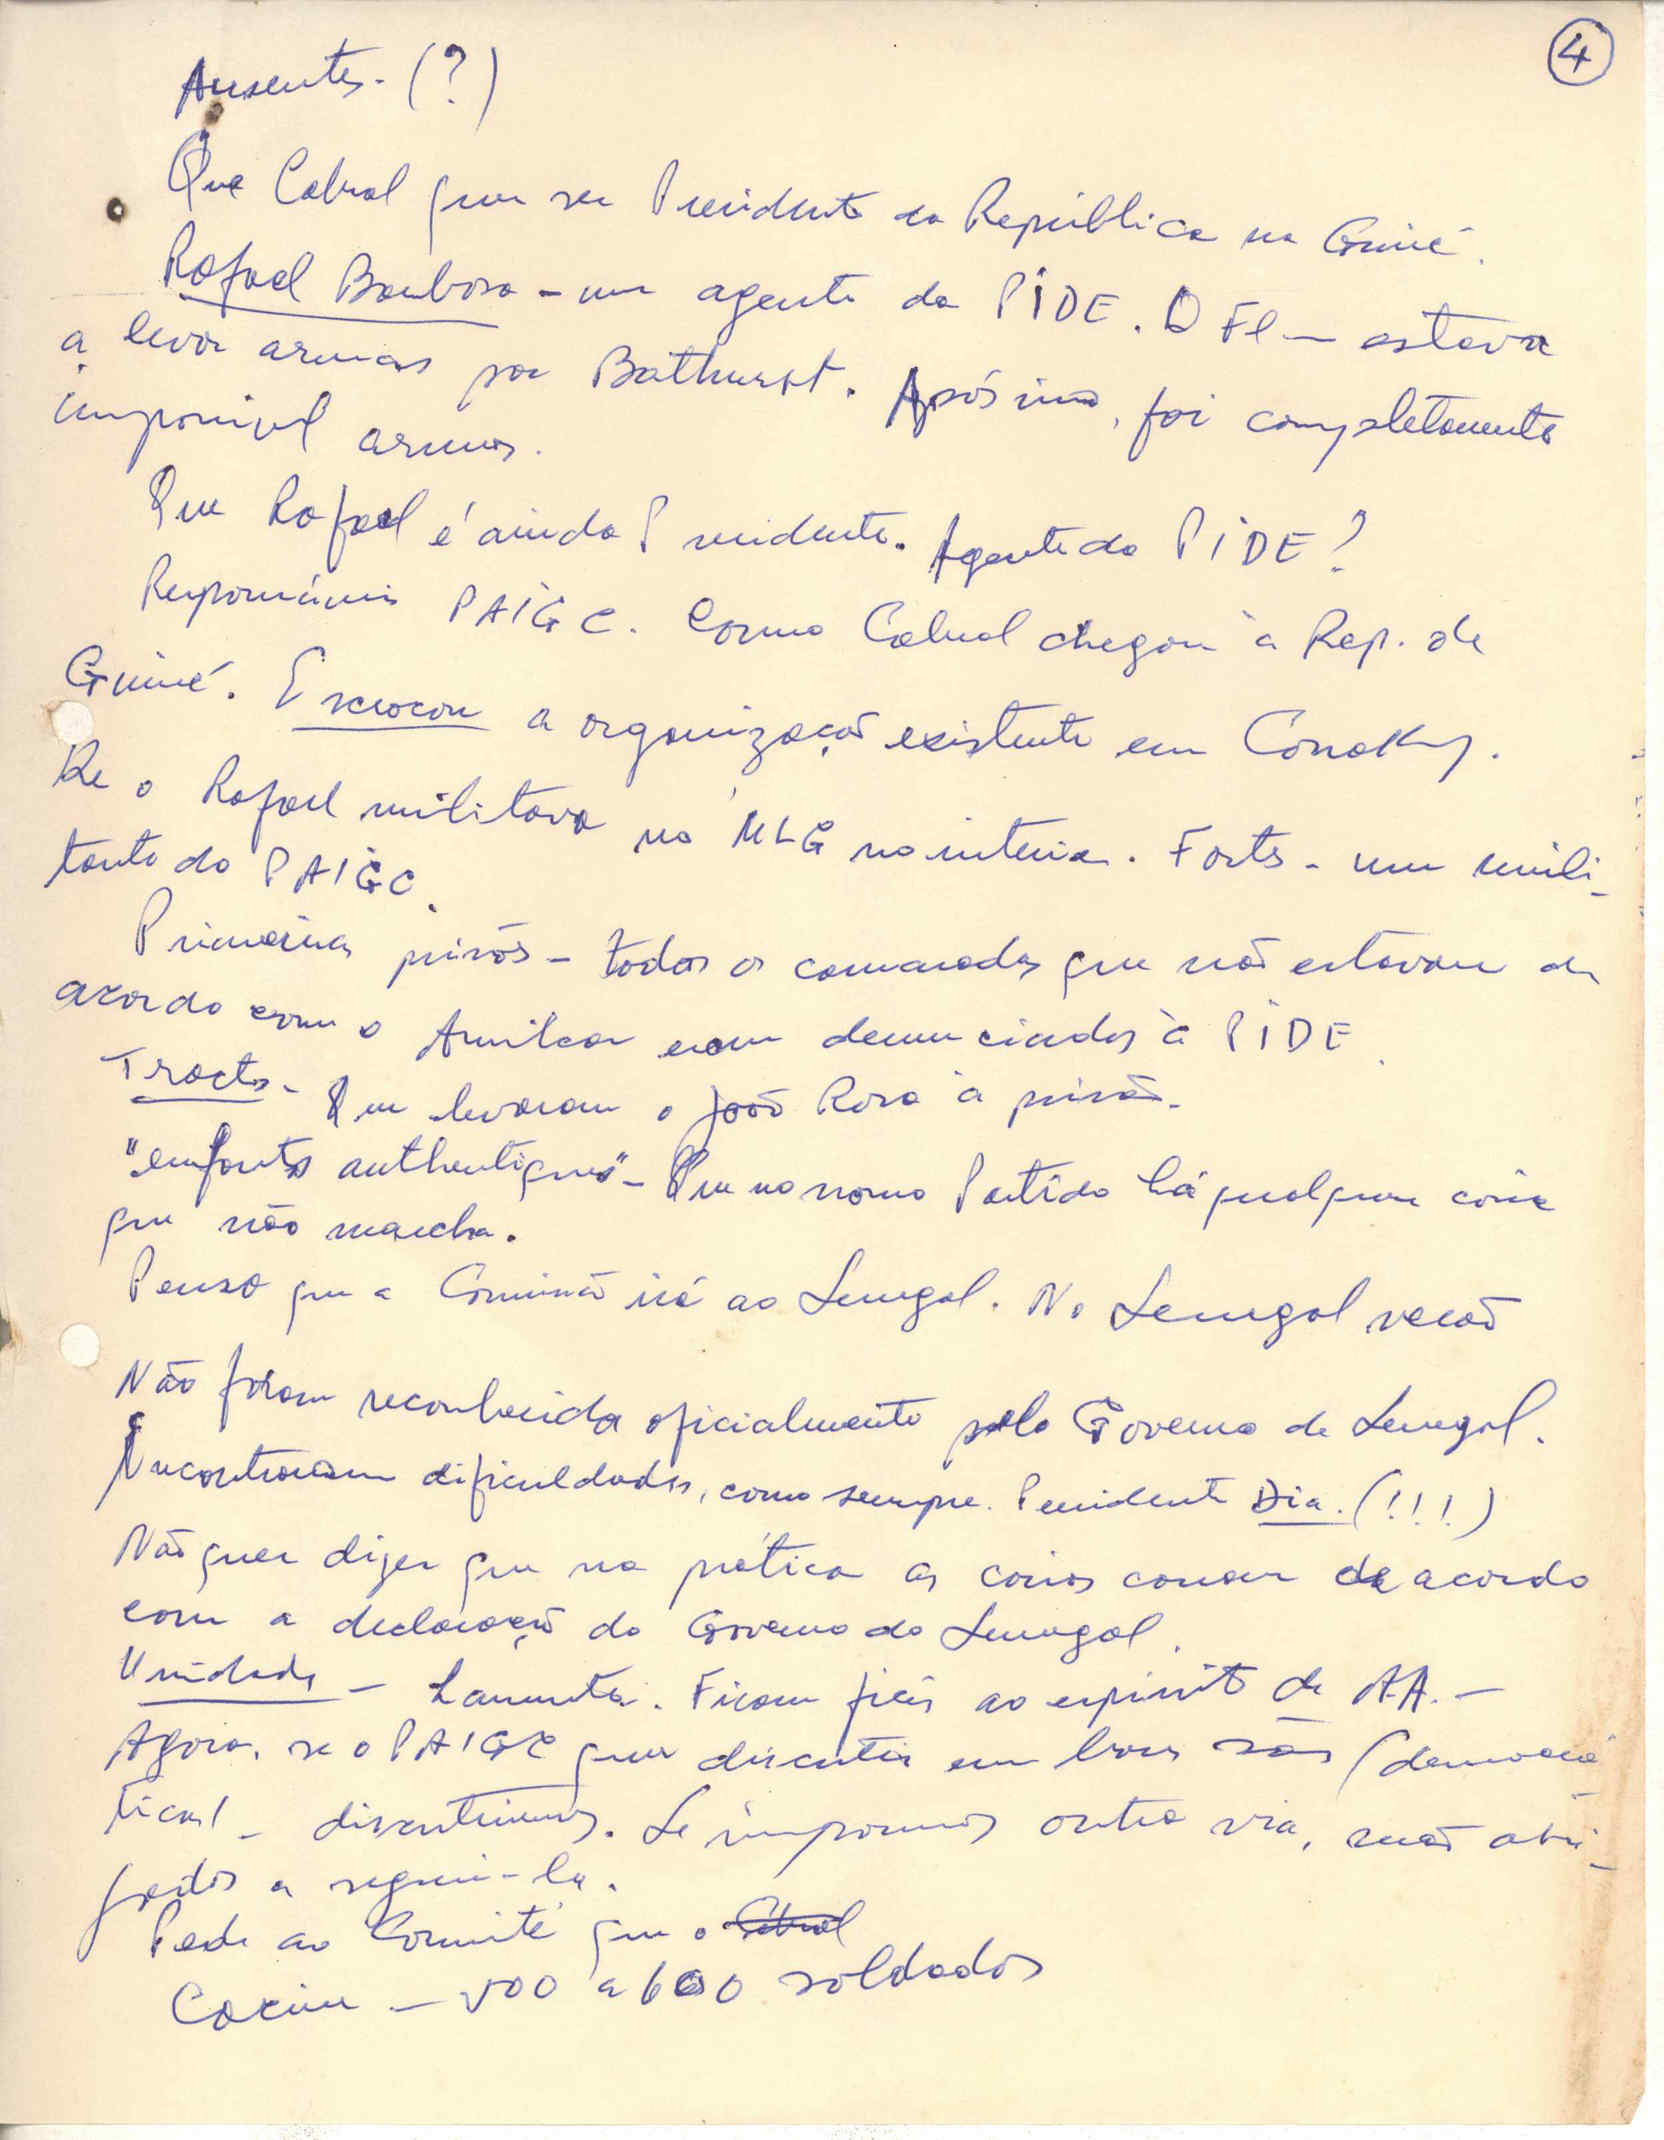 4
Ausentes - (?)
Que Cabral quer ser Presidente da República na Guiné.
Rafael Barbosa - um agente da PIDE. O Fl — estava
a levar armas por Bathurst. Após isso, foi completamente
impossível armas.
Que Rafael é ainda Presidente. Agente da PIDE?
Responsáveis PAIGC. Como Cabral chegou à Rep. de
Guiné. Escrocou a organização existente em Conakry.
Que o Rafael militava no MLG no interior. Fortes - um mili-
tante do PAIGC.
Primeiras prisões - todos os camaradas que não estavam de
acordo com o Amilcar eram denunciados à PIDE.
Tracts - Que levaram o João Rosa à prisão -
"enfants authentiques" - Que no nosso Partido há qualquer coisa
que não marcha.
Penso que a Comissão irá ao Senegal. No Senegal verão
Não foram reconhecida oficialmente pelo Governo de Senegal.
Encontraram dificuldades, como sempre. Presidente Dia. (!!!)
Não quer dizer que na prática as coisas corram de acordo
com a declaração do Governo do Senegal.
Unidade - Lamenta. Ficam fieis ao espírito de A.A. -
Agora, se o PAIGC quer discutir em bases sãs (democrá-
ticas) - discutiremos. Se impormos outra via, serão obri-
gados a segui-la.
Pede ao Comité que o Cabral
- 500 a 600 soldados